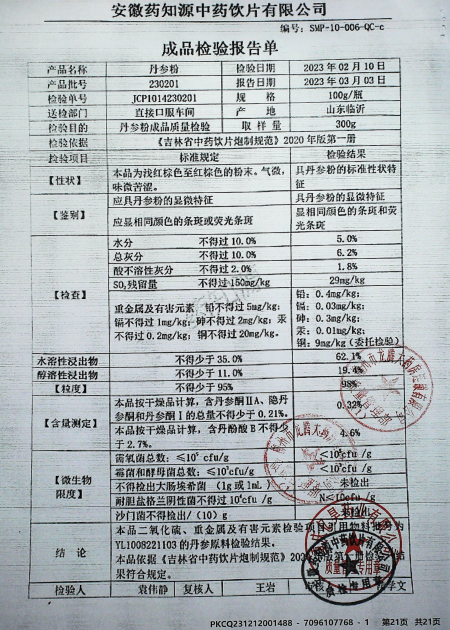 安徽药知源中药饮片有限公司
编号: SMP-10-006-QC-c
成品检验报告单
产品名称 丹参粉 检验日期 2023 年 02 月 10 日
产品批号 230201 报告日期 2023 年 03 月 03 日
检验单号 JCP1014230201 规 格 100g/瓶
送检部门 直接口服车间 产 地 山东临沂
检验目的 丹参粉成品质量检验 取 样 量 300g
检验依据 《吉林省中药饮片炮制规范》2020 年版第一册
检验项目 标准规定 检验结果
【性状】 本品为浅红棕色至红棕色的粉末。气微,味微苦涩。 具丹参粉的标准性状特征
【鉴别】 应具丹参粉的显微特征 具丹参粉的显微特征
应显相同颜色的条斑或荧光条斑 显相同颜色的条斑和荧光条斑
【检查】
水分 不得过 10.0% 5.0%
总灰分 不得过 10.0% 6.2%
酸不溶性灰分 不得过 2.0% 1.8%
SO₂残留量 不得过 150mg/kg 29mg/kg
重金属及有害元素 铅不得过 5mg/kg; 铅: 0.4mg/kg;
镉不得过 1mg/kg; 砷不得过 2mg/kg; 汞 镉: 0.03mg/kg;
不得过 0.2mg/kg; 铜不得过 20mg/kg. 砷: 0.3mg/kg;
汞: 0.01mg/kg;
铜: 9mg/kg (委托检验)
水溶性浸出物 不得少于 35.0% 62.1%
醇溶性浸出物 不得少于 11.0% 19.4%
【粒度】 不得少于 95% 98%
【含量测定】 本品按干燥品计算, 含丹参酮ⅡA、隐丹
参酮和丹参酮Ⅰ的总量不得少于 0.21%. 0.32%
本品按干燥品计算, 含丹酚酸 B 不得少 4.6%
于 2.7%.
【微生物限度】 需氧菌总数: cfu/g
霉菌和酵母菌总数: cfu/g
不得检出大肠埃希菌 (1g 或 1mL) 未检出
耐胆盐格兰阴性菌不得过 cfu /g
沙门菌不得检出/ (10) g 未检出
结 论 本品二氧化硫、重金属及有害元素检验项目引用物料批号为
YL1008221103 的丹参原料检验结果。
本品按依据《吉林省中药饮片炮制规范》2020
果符合规定。
检验人 袁伟静 复核人 王岩
质检专用章
PKCQ231212001488 - 7096107768 - 1 第21页 共21页